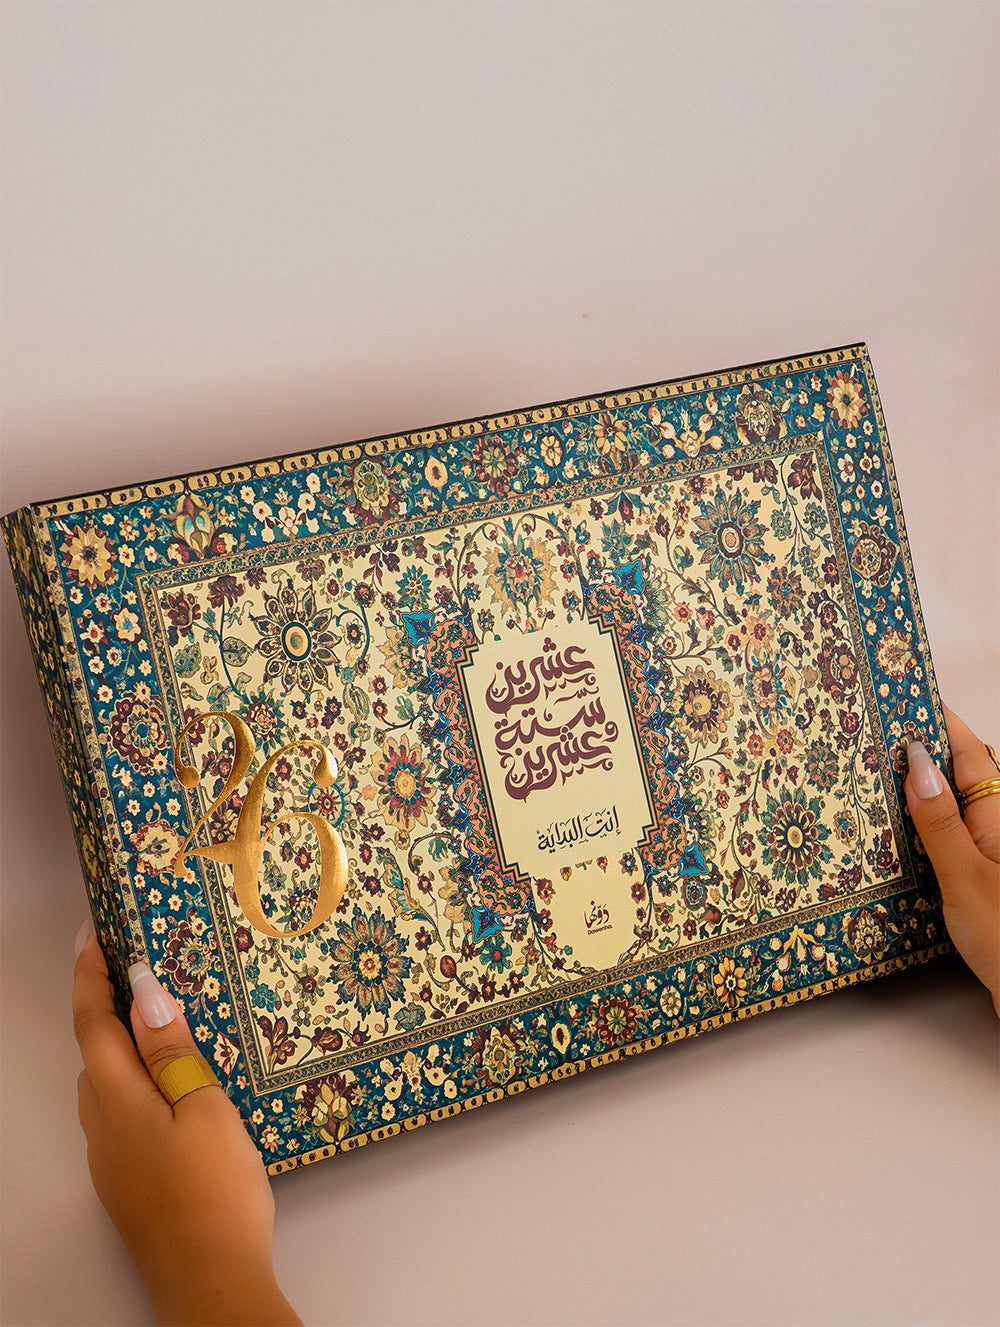 26
عشرين
ستة
وعشرين
إنت البداية
دونها
Dawenha.